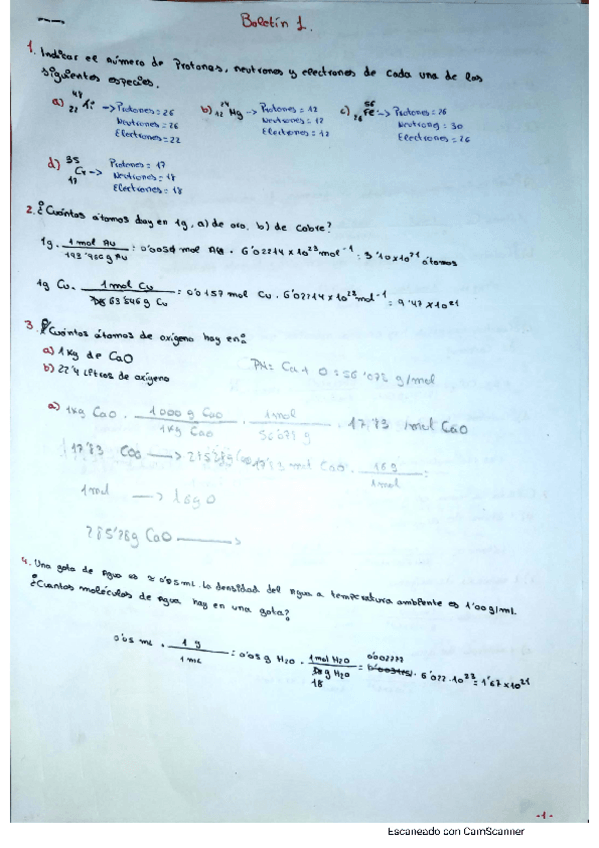 Boletín 1.
1. Indicar el número de Protones, neutrones y electrones de cada una de las
siguientes especies.
a) 48 22 Ti -> Protones = 26
Neutrones = 26
Electrones = 22
b) 24 12 Mg -> Protones = 12
Neutrones = 12
Electrones = 12
c) 56 26 Fe -> Protones = 26
Neutrones = 30
Electrones = 26
d) 35 17 -> Protones = 17
Neutrones = 18
Electrones = 18
2. ¿Cuántos átomos hay en 1g, a) de oro, b) de cobre?
1g. 1 mol Au = 0'0050 mol Au · 6'02214 x 10²³ mol⁻¹ = 3'10 x 10²¹ átomos
g Au
1g Cu. 1 mol Cu = 0'0157 mol Cu · 6'02214 x 10²³ mol⁻¹ = 9'47 x 10²¹
63'546 g Cu
3. ¿Cuántos átomos de oxígeno hay en:
a) 1 Kg de CaO
b) 22'4 Litros de oxígeno
PM: Ca + O = 56'078 g/mol
a) 1kg CaO · 1000 g CaO · 1mol · 17'83 mol CaO
1kg CaO 56'078 g
17'83 CaO -> 285'28g 17'83 mol CaO · 16g =
1mol
1mol -> 16g O
285'28g CaO ->
4. Una gota de Agua es ≈ 0'05 mL. La densidad del agua a temperatura ambiente es 1'00 g/mL.
¿Cuántas moléculas de agua hay en una gota?
0'05 mL · 1 g = 0'05 g H₂O · 1 mol H₂O = 0'002777 · 6'022·10²³ = 1'67 x 10²¹
1 mL 18 g H₂O
-1-
Escaneado con CamScanner